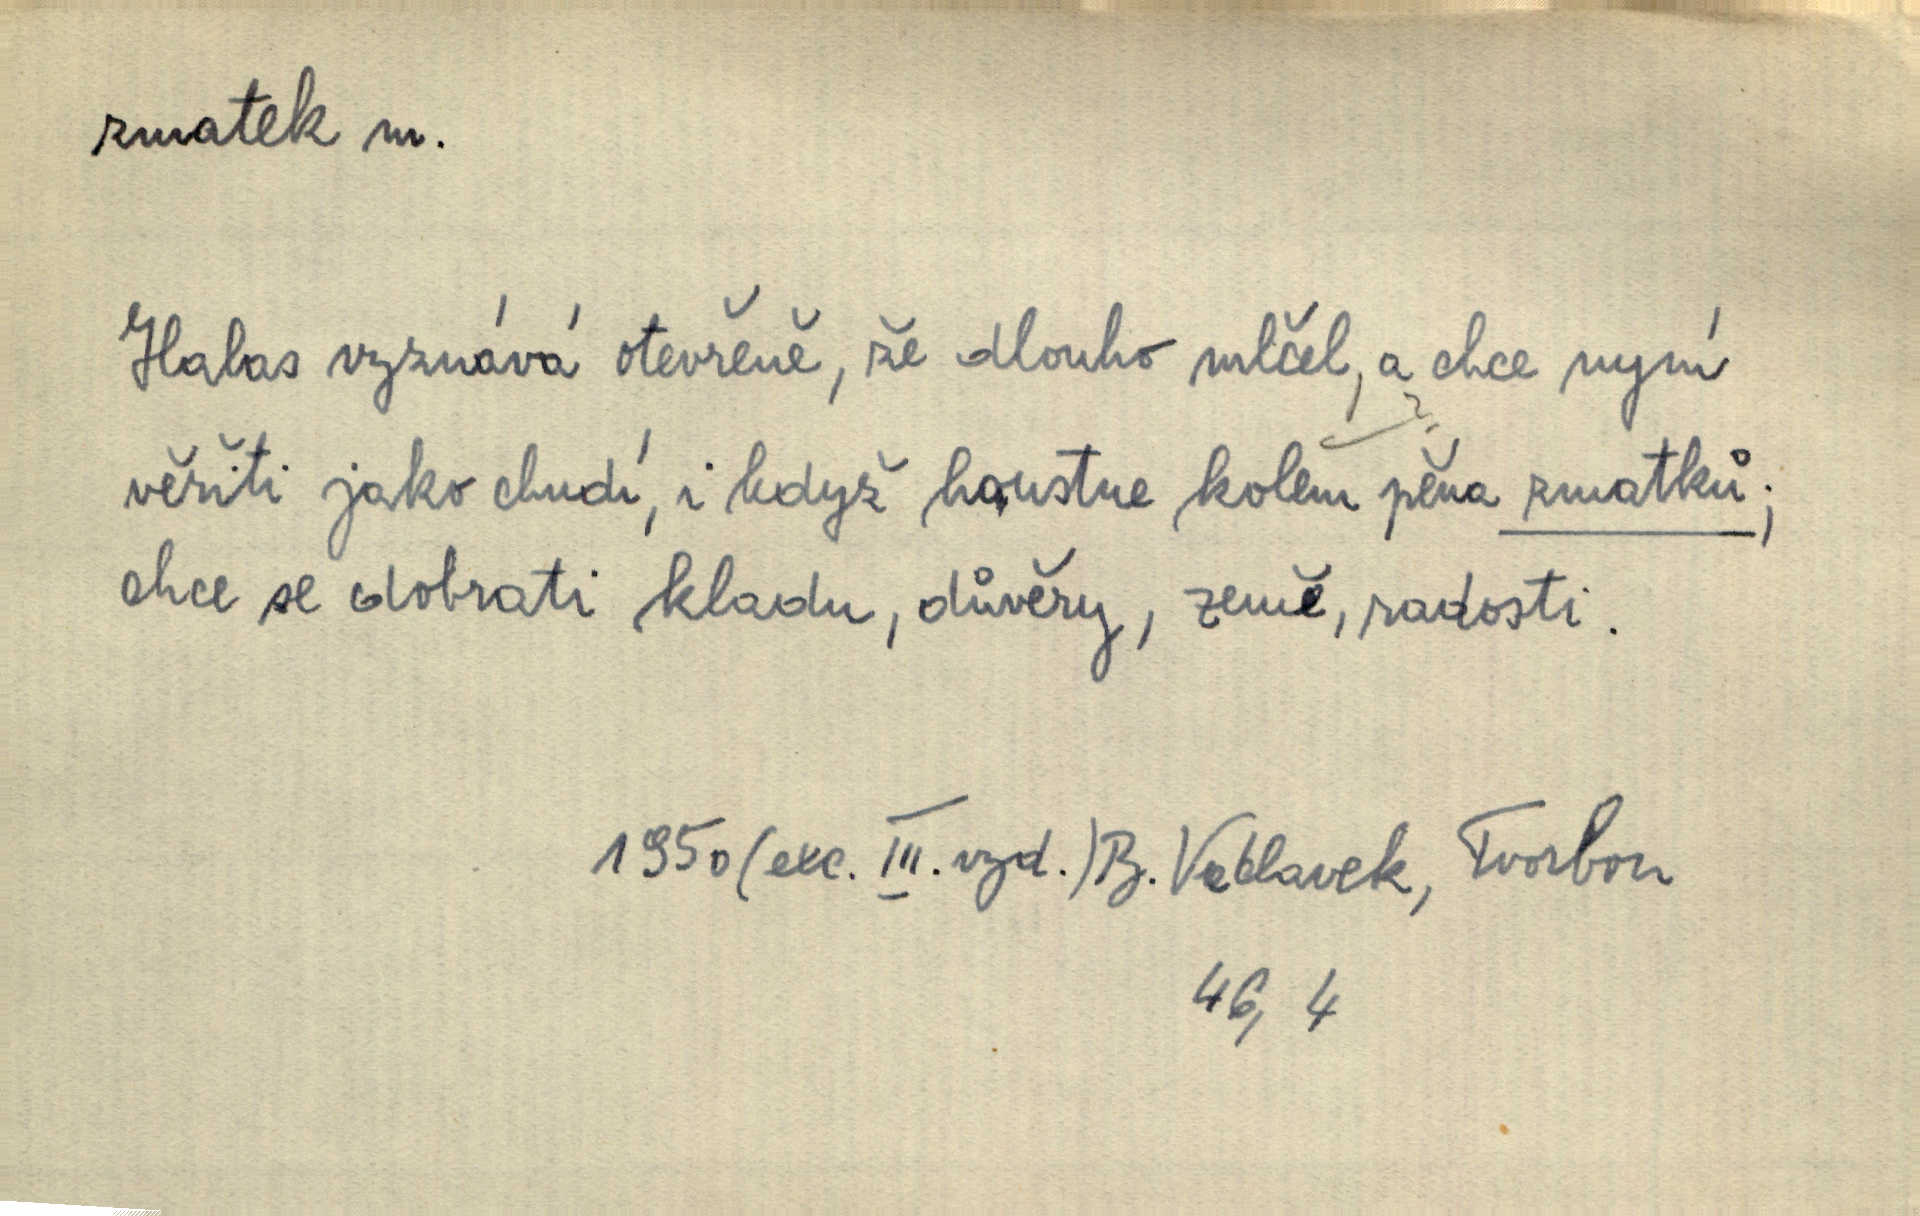 zmatek m.
Halas vyznává otevřeně, že dlouho mlčel, a chce nyní
věřiti jako chudí, i když houstne kolem pěna zmatků;
chce se dobrati kladu, důvěry, země, radosti.
1950 (exc. III. vyd.) B. Václavek, Tvorbou
46, 4